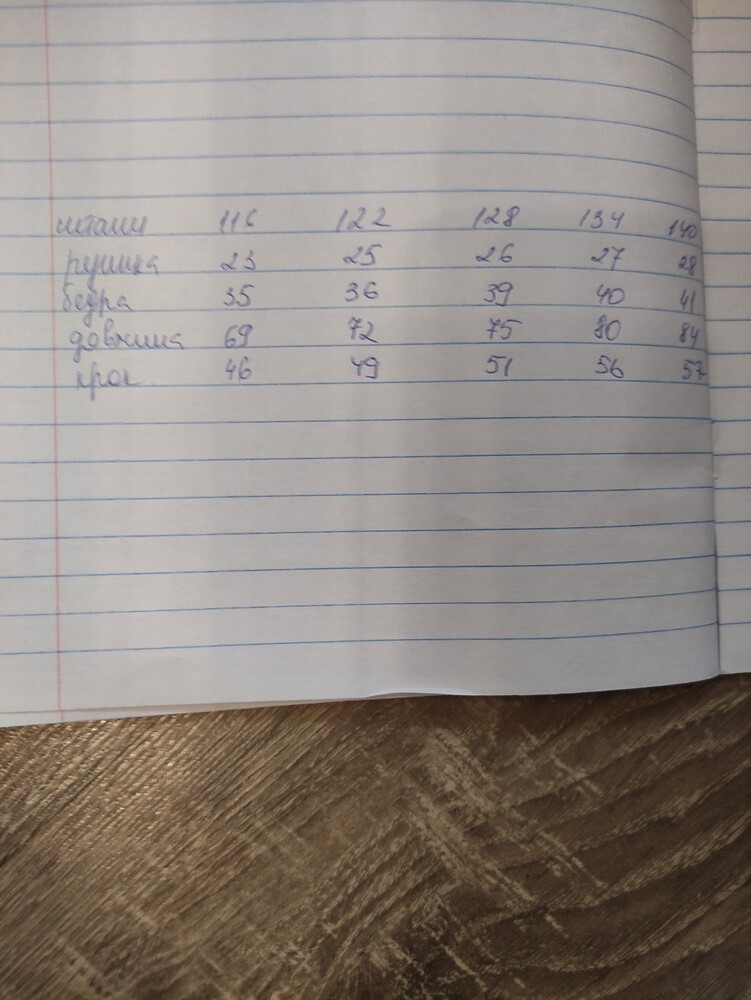 штани 116 122 128 134 140
резинка 23 25 26 27 28
бедра 35 36 39 40 41
довжина 69 72 75 80 84
крок 46 49 51 56 57